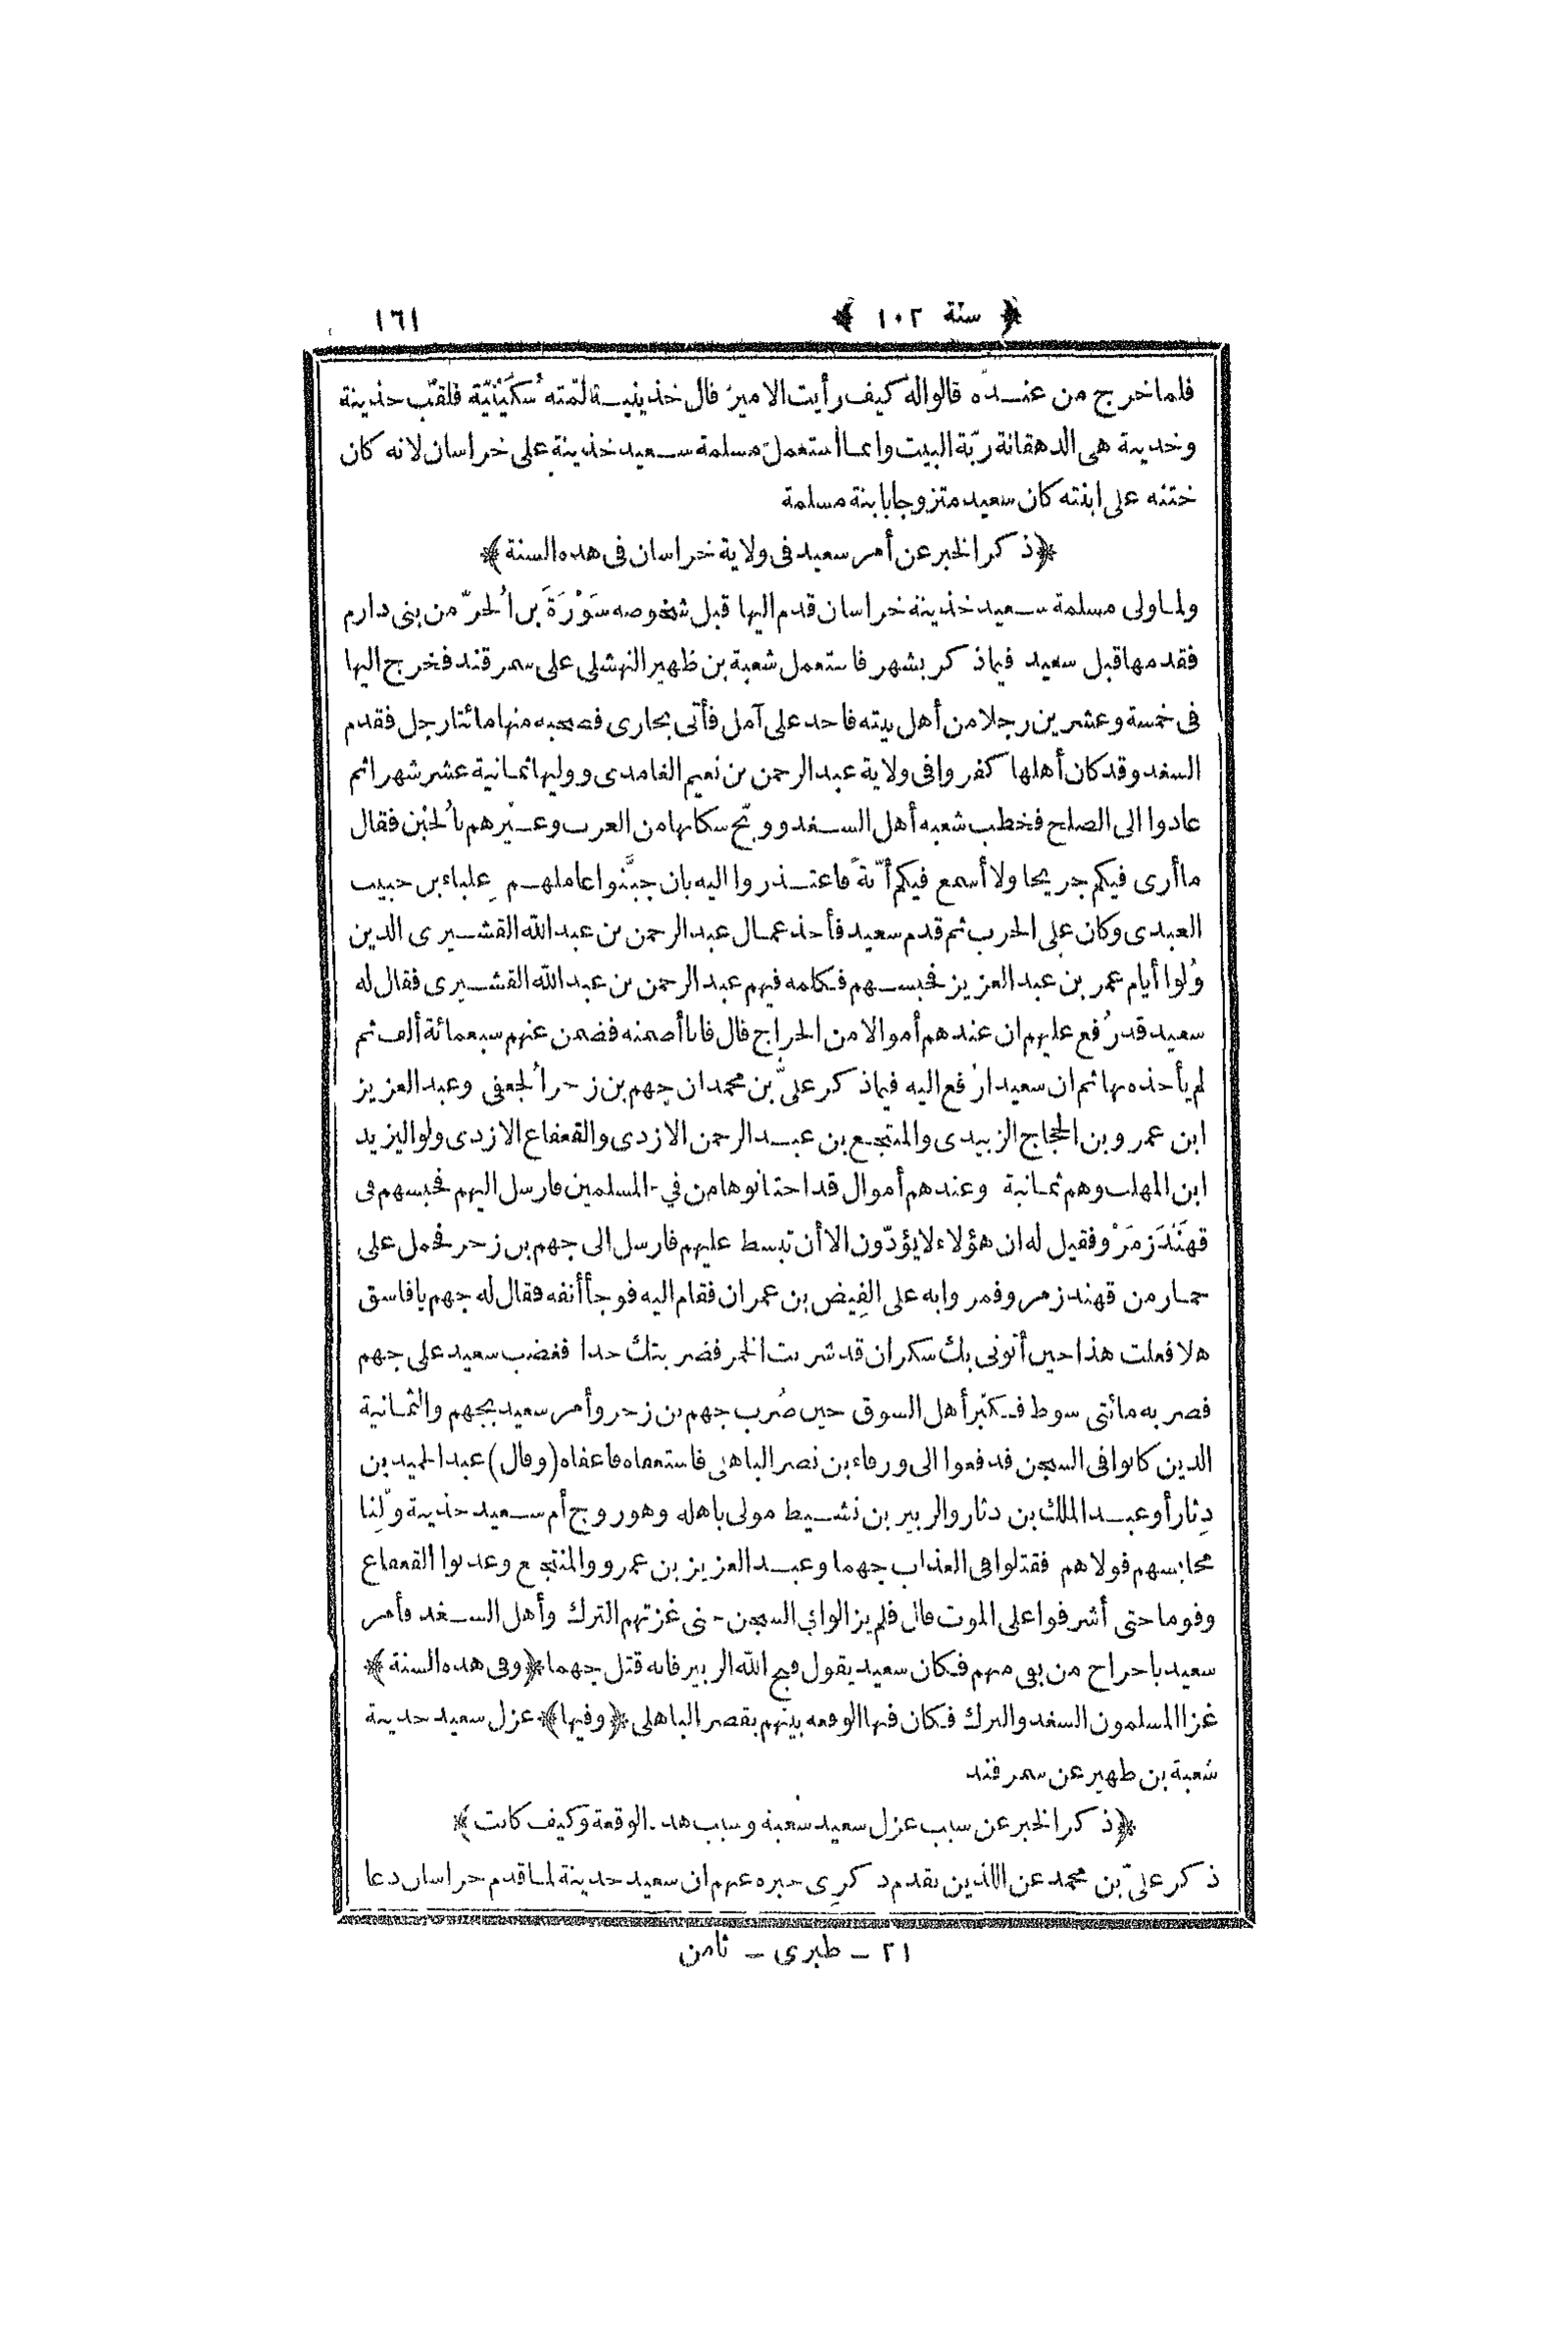 ﴿ سنة ١٠٢ ﴾ ١٦١
فلما خرج من عنده قالوا له كيف رأيت الامير قال خذينية لمّته سُكَيْنيّة فلقّب خذينة
وخذينة هى الدهقانة ربّة البيت وانما استعمل مسلمة سعيد خذينة على خراسان لانه كان
ختنه على ابنته كان سعيد متزوجا بابنة مسلمة
﴿ذكر الخبر عن أمر سعيد فى ولاية خراسان فى هذه السنة﴾
ولما ولى مسلمة سعيد خذينة خراسان قدم اليها قبل شخوصه سَوْرَةَ بن الحُرّ من بنى دارم
فقدمها قبل سعيد فيما ذكر بشهر فاستعمل شعبة بن ظهير النهشلى على سمرقند فخرج اليها
فى خمسة وعشرين رجلا من أهل بيته فاخذ على آمل فأتى بخارى فصحبه منها مائتا رجل فقدم
السغد وقد كان أهلها كفروا فى ولاية عبد الرحمن بن نعيم الغامدى ووليها ثمانية عشر شهرا ثم
عادوا الى الصلح فخطب شعبة أهل السغد ووبّخ سكانها من العرب وعيّرهم بالجُبْن فقال
ما أرى فيكم جريحا ولا أسمع فيكم أنّةً فاعتذروا اليه بان جبَّنوا عاملهم عِلباء بن حبيب
العبدى وكان على الحرب ثم قدم سعيد فأخذ عمال عبد الرحمن بن عبد الله القشيرى الذين
وُلوا أيام عمر بن عبد العزيز فحبسهم فكلمه فيهم عبد الرحمن بن عبد الله القشيرى فقال له
سعيد قد رُفع عليهم ان عندهم أموالا من الخراج قال فانا أضمنه فضمن عنهم سبعمائة ألف ثم
لم يأخذه بها ثم ان سعيدا رُفع اليه فيما ذكر علىّ بن محمد ان جهم بن زحر الجُعفى وعبد العزيز
ابن عمرو بن الحجاج الزبيدى والمنتجع بن عبد الرحمن الازدى والقعقاع الازدى ولوا ليزيد
ابن المهلب وهم ثمانية وعندهم أموال قد اختانوها من فىء المسلمين فارسل اليهم فحبسهم فى
قهَنْدَز مَرْو فقيل له ان هؤلاء لا يؤدّون الا أن تبسط عليهم فارسل الى جهم بن زحر فحمل على
حمار من قهندز مرو فمروا به على الفِيض بن عمران فقام اليه فوجأ أنفه فقال له جهم يا فاسق
هلا فعلت هذا حين أتونى بك سكران قد شربت الخمر فضربتك حدا فغضب سعيد على جهم
فضربه مائتى سوط فكبّر أهل السوق حين ضُرب جهم بن زحر وأمر سعيد بجهم والثمانية
الذين كانوا فى السجن فدفعوا الى ورقاء بن نصر الباهلى فاستعفاه فاعفاه (وقال) عبد الحميد بن
دِثار أو عبد الملك بن دثار والزبير بن نشيط مولى باهلة وهو زوج أم سعيد خذينة ولِّنا
محابسهم فولاهم فقتلوا فى العذاب جهما وعبد العزيز بن عمرو والمنتجع وعذبوا القعقاع
وقوما حتى أشرفوا على الموت قال فلم يزالوا فى السجن حتى غزتهم الترك وأهل السغد فأمر
سعيد باخراج من بقى منهم فكان سعيد يقول قبح الله الزبير فانه قتل جهما ﴿وفى هذه السنة﴾
غزا المسلمون السغد والترك فكان فيها الوقعة بينهم بقصر الباهلى ﴿وفيها﴾ عزل سعيد خذينة
شعبة بن ظهير عن سمرقند
﴿ذكر الخبر عن سبب عزل سعيد شعبة وسبب هذه الوقعة وكيف كانت﴾
ذكر علىّ بن محمد عن الذين تقدم ذكرى خبره عنهم ان سعيد خذينة لما قدم خراسان دعا
٢١ – طبرى – ثامن